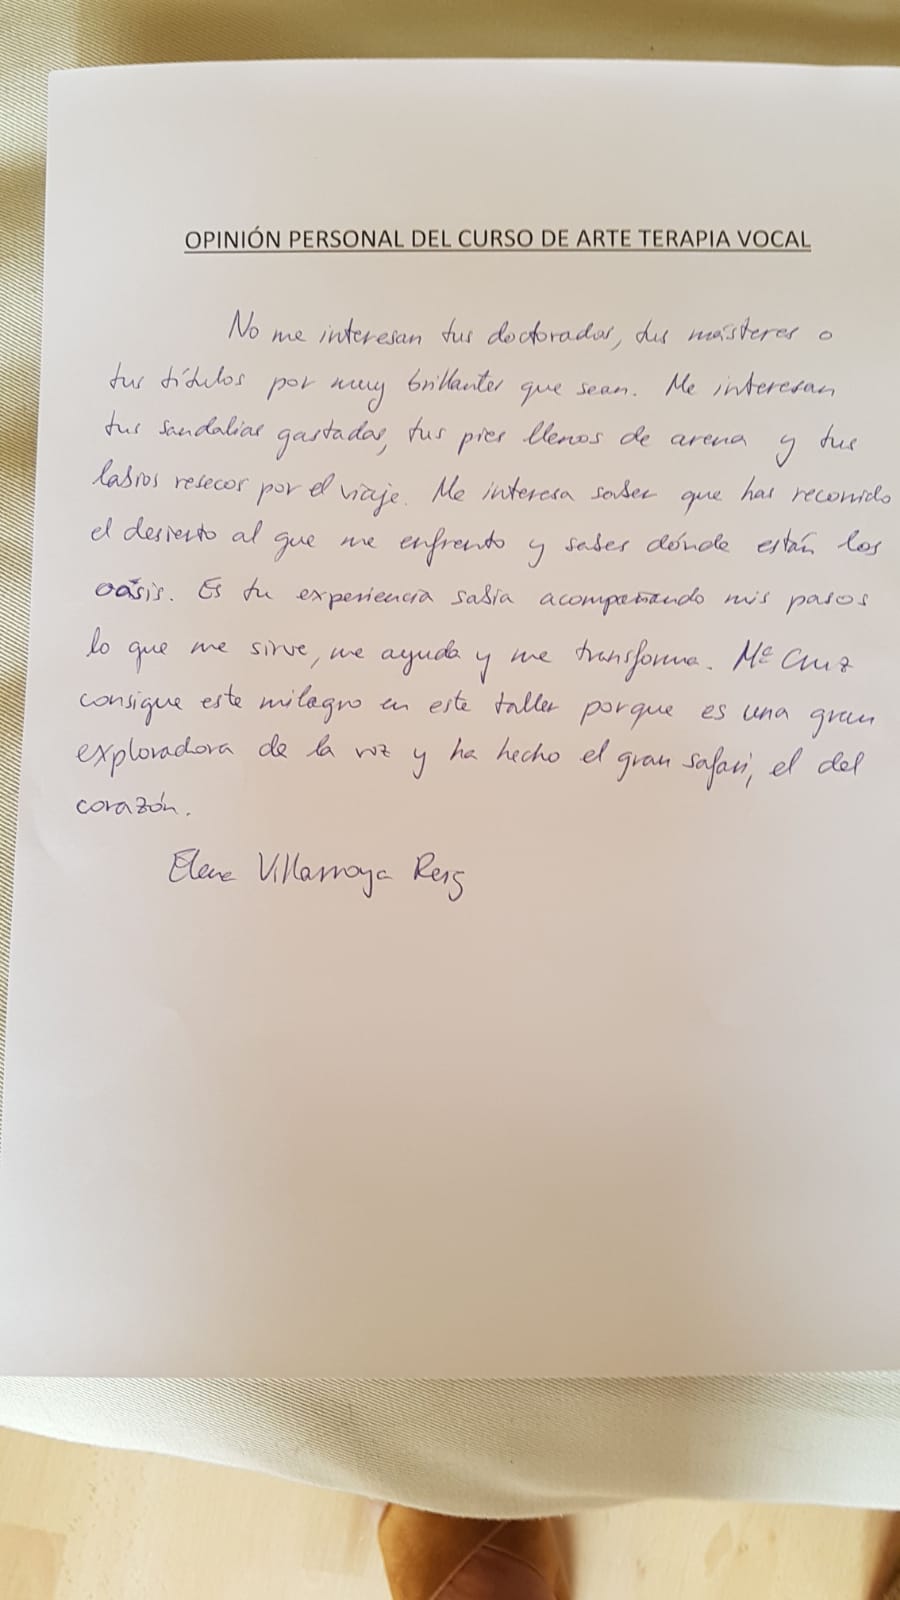 OPINIÓN PERSONAL DEL CURSO DE ARTE TERAPIA VOCAL
No me interesan tus doctorados, tus másteres o
tus títulos por muy brillantes que sean. Me interesan
tus sandalias gastadas, tus pies llenos de arena y tus
labios resecos por el viaje. Me interesa saber que has recorrido
el desierto al que me enfrento y sabes dónde están los
oásis. Es tu experiencia sabia acompañando mis pasos
lo que me sirve, me ayuda y me transforma. Mª Cruz
consigue este milagro en este taller porque es una gran
exploradora de la voz y ha hecho el gran safari, el del
corazón.
Elena Villarroya Reig